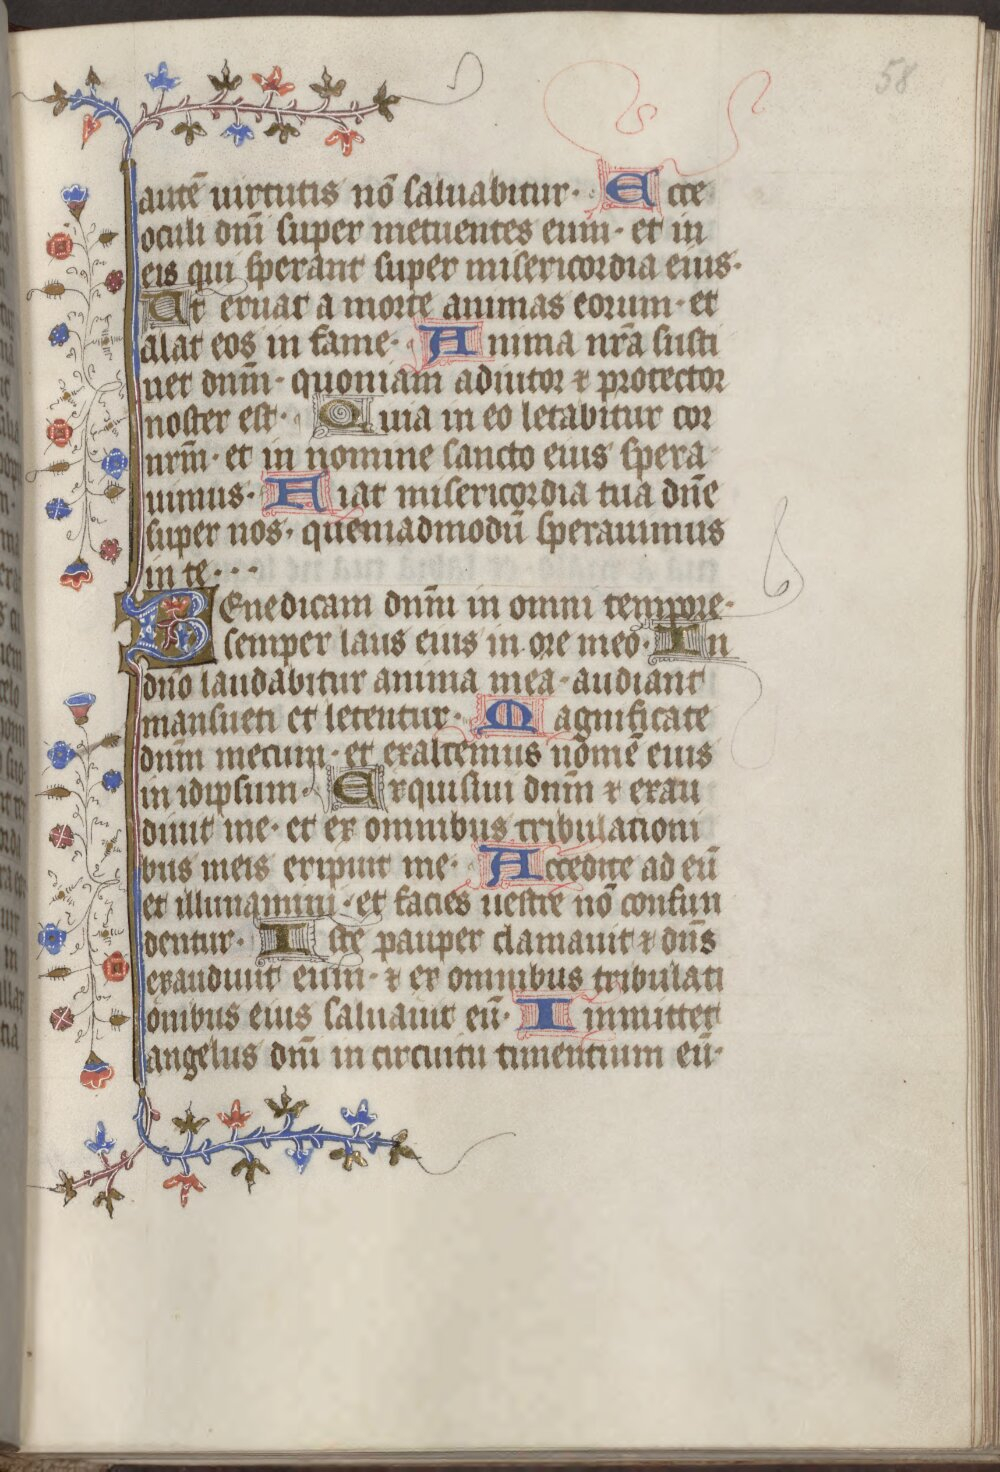 58
autē uirtutis nō saluabitur · Ecce
oculi dnī super metuentes eum · et in
eis qui sperant super misericordia eius ·
Ut eruat a morte animas eorum · et
alat eos in fame · Anima nrā susti
net dnm̄ · quoniam adiutor ⁊ protector
noster est · Quia in eo letabitur cor
nrm̄ · et in nomine sancto eius spera
uimus · Fiat misericordia tua dnē
super nos · quemadmodū sperauimus
in te · · ·
Benedicam dnm̄ in omni tempore ·
semper laus eius in ore meo · In
dnō laudabitur anima mea · audiant
mansueti et letentur · Magnificate
dnm̄ mecum · et exaltemus nomē eius
in idipsum · Exquisiui dnm̄ ⁊ exau
diuit me · et ex omnibus tribulationi
bus meis eripuit me · Accedite ad eū
et illuminamini · et facies uestre nō confun
dentur · Iste pauper clamauit ⁊ dns̄
exaudiuit eum · ⁊ ex omnibus tribulati
onibus eius saluauit eū · Inmittet
angelus dnī in circuitu timentium eū ·